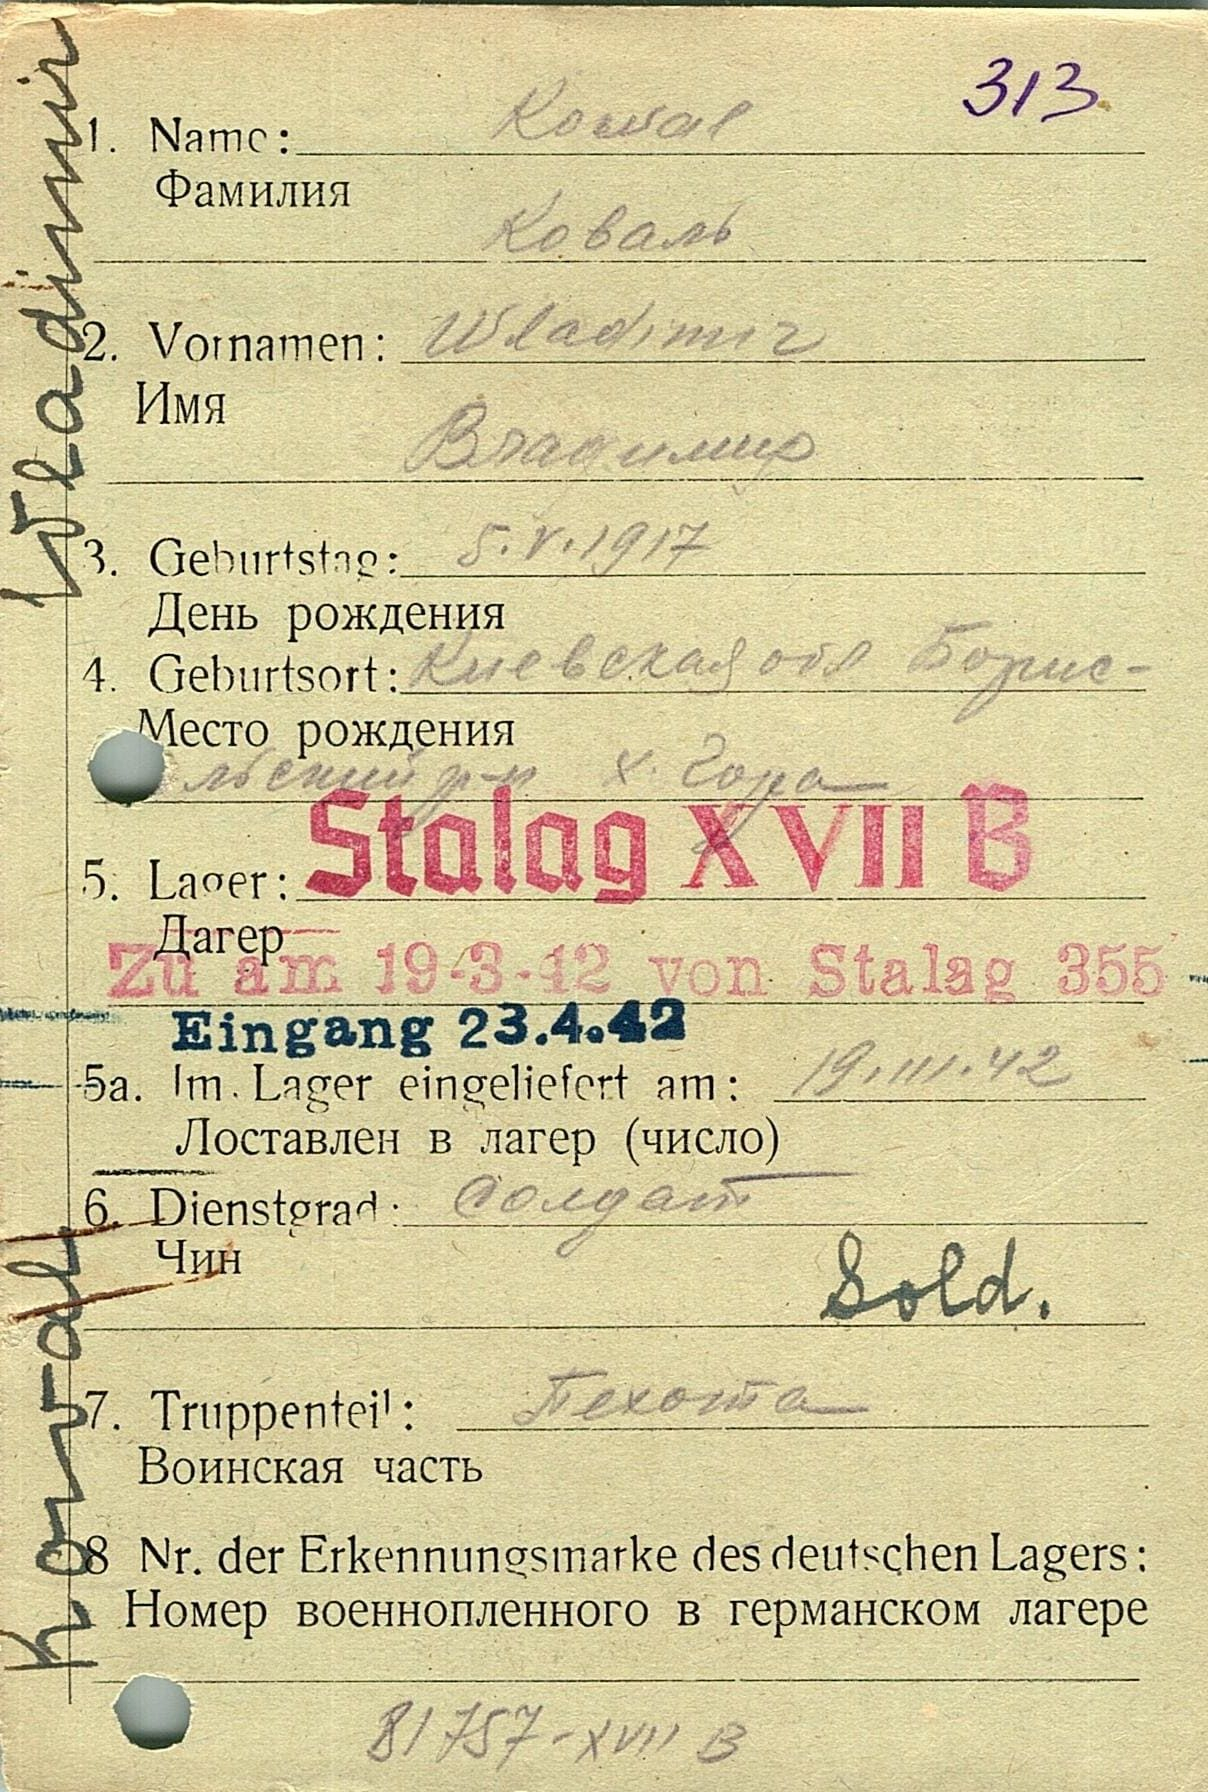 313
1. Name: Kowal
Фамилия
Коваль
2. Vornamen: Wladimir
Имя
Владимир
3. Geburtstag: 5.V.1917
День рождения
4. Geburtsort: Киевская обл Борис-
Место рождения
льский р-н х. Гора
Stalag XVII B
5. Lager:
Дагер
Zu am 19-3-42 von Stalag 355
Eingang 23.4.42
5a. Im Lager eingeliefert am: 19.III.42
Лоставлен в лагер (число)
6. Dienstgrad: Солдат
Чин
Sold.
7. Truppenteil: Пехота
Воинская часть
8 Nr. der Erkennungsmarke des deutschen Lagers:
Номер военнопленного в германском лагере
81757-XVII B
Kowal Wladimir